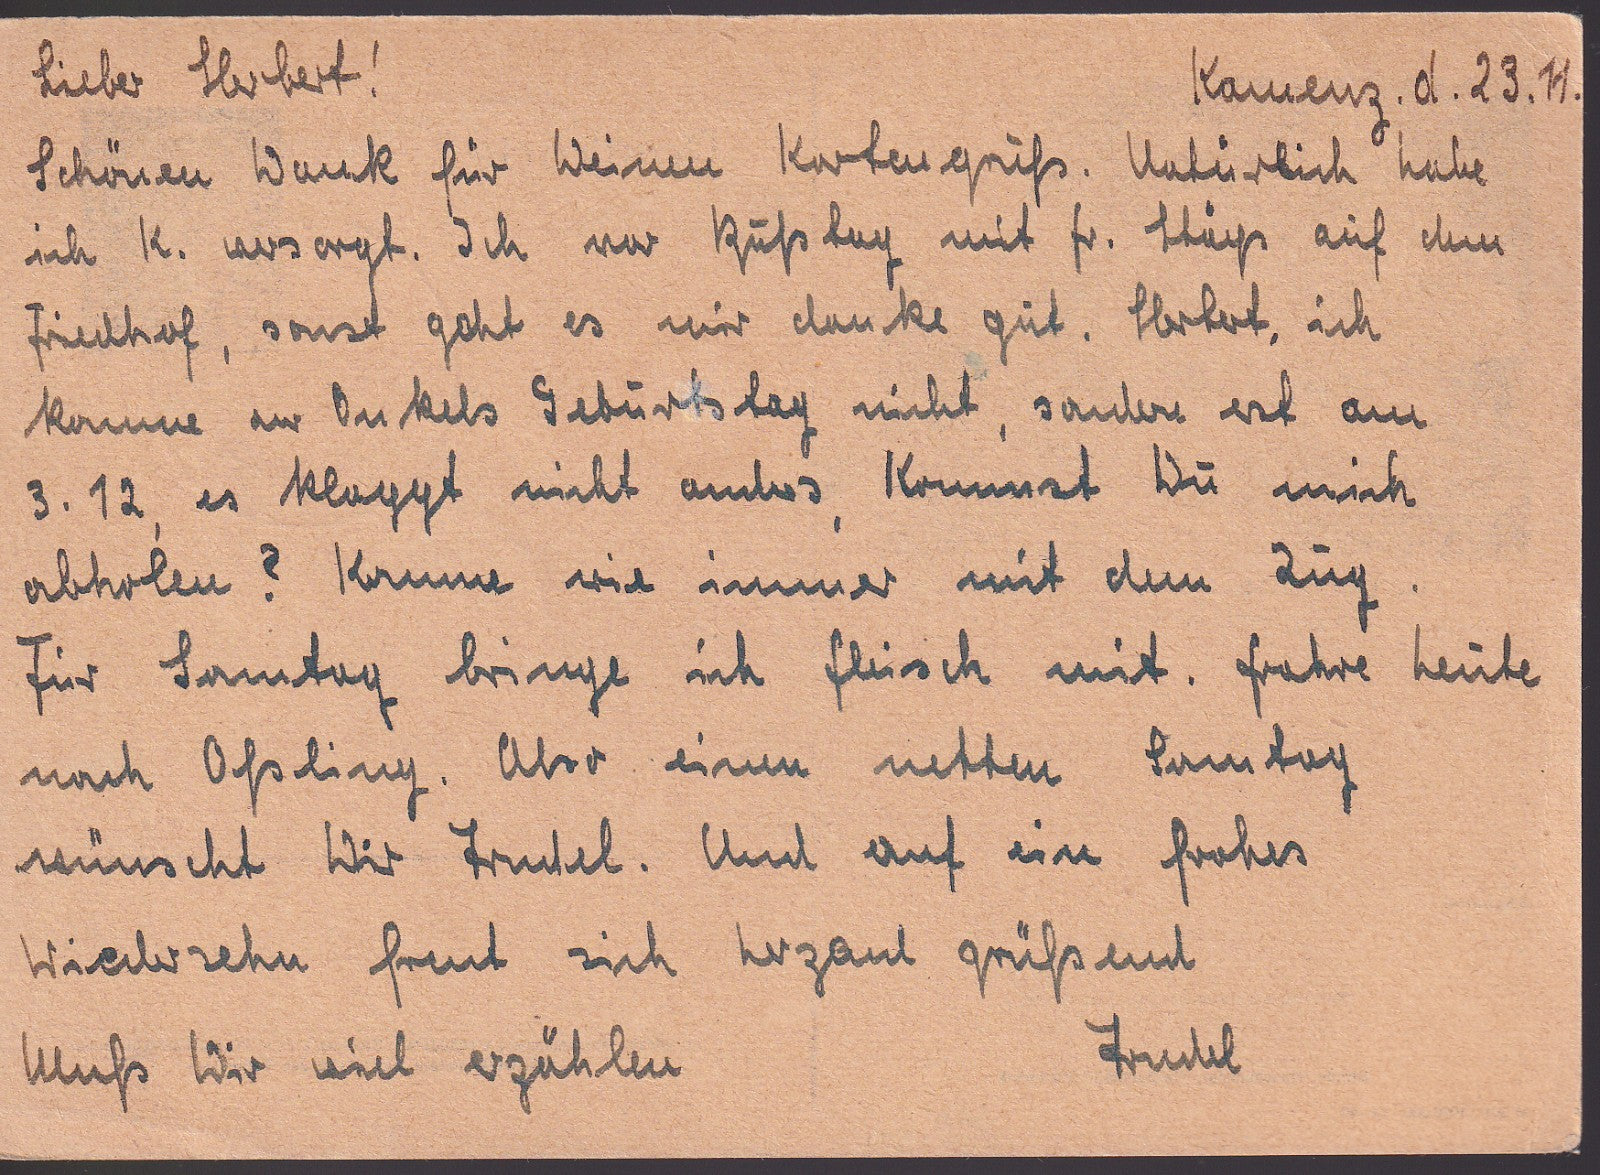 Lieber Herbert! Kamenz. d. 23. 11.
Schönen Dank für Deinen Kartengruß. Natürlich habe
ich K. versorgt. Ich war Bußtag mit Fr. auf dem
Friedhof, sonst geht es mir danke gut. Herbert, ich
komme an Onkels Geburtstag nicht, sondern erst am
3. 12, es klappt nicht anders, Kommst Du mich
abholen? Komme wie immer mit dem Zug.
Für Sonntag bringe ich Fleisch mit. fahre heute
nach Oßling. Also einen netten Sonntag
wünscht Dir Trudel. Und auf ein frohes
Wiedersehn freut sich grüßend
Muß Dir viel erzählen Trudel